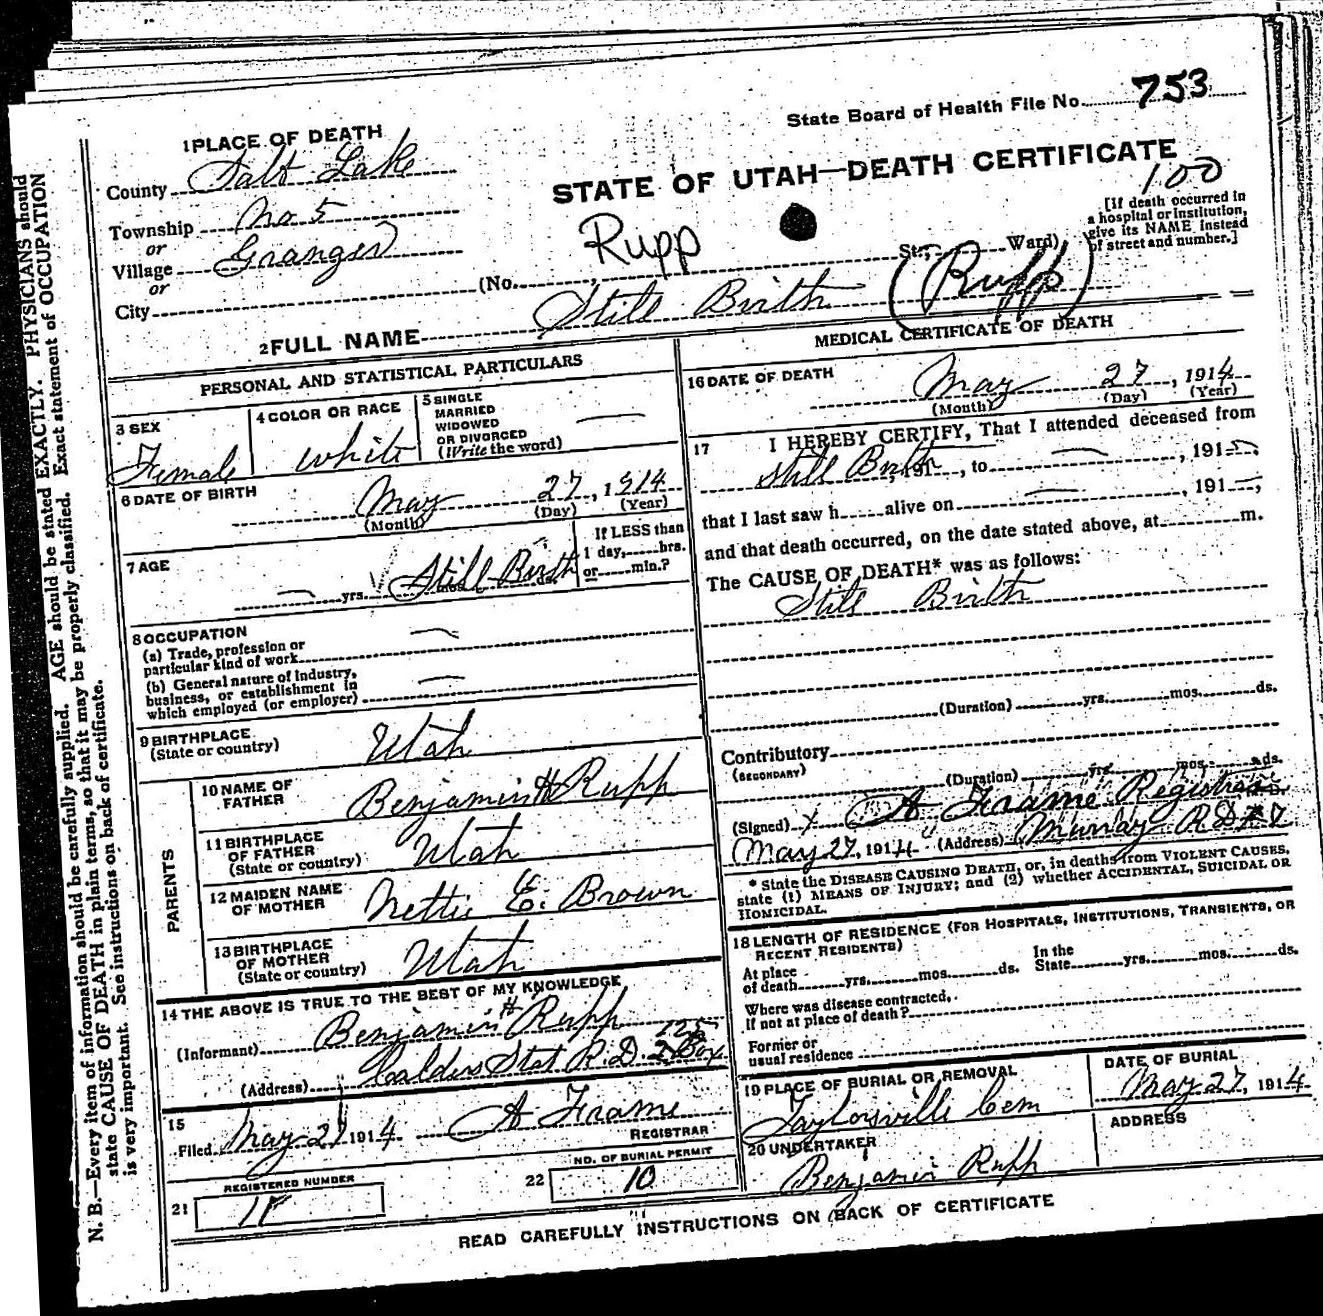 State Board of Health File No. 753
1 PLACE OF DEATH
County Salt Lake
STATE OF UTAH—DEATH CERTIFICATE
100
Township No 5
or
Village Granger
or
City
Rupp
(No. St.; Ward)
[If death occurred in
a hospital or institution,
give its NAME instead
of street and number.]
2 FULL NAME Still Birth (Rupp)
PERSONAL AND STATISTICAL PARTICULARS
3 SEX
Female
4 COLOR OR RACE
white
5 SINGLE
MARRIED
WIDOWED
OR DIVORCED
(Write the word)
6 DATE OF BIRTH
May 27, 1914
(Month) (Day) (Year)
7 AGE
Still Birth
yrs. mos. ds.
If LESS than
1 day, hrs.
or min.?
8 OCCUPATION
(a) Trade, profession or
particular kind of work
(b) General nature of Industry,
business, or establishment in
which employed (or employer)
9 BIRTHPLACE
(State or country)
Utah
PARENTS
10 NAME OF
FATHER
Benjamin H Rupp
11 BIRTHPLACE
OF FATHER
(State or country)
Utah
12 MAIDEN NAME
OF MOTHER
Nettie E. Brown
13 BIRTHPLACE
OF MOTHER
(State or country)
Utah
14 THE ABOVE IS TRUE TO THE BEST OF MY KNOWLEDGE
(Informant) Benjamin H Rupp
(Address) Stat R.D. 2 Box
15
Filed May 27 1914 A Frame
REGISTRAR
21
REGISTERED NUMBER
22
NO. OF BURIAL PERMIT
10
MEDICAL CERTIFICATE OF DEATH
16 DATE OF DEATH
May 27, 1914
(Month) (Day) (Year)
17 I HEREBY CERTIFY, That I attended deceased from
Still Birth, 191 , to , 191
that I last saw h alive on , 191
and that death occurred, on the date stated above, at m.
The CAUSE OF DEATH* was as follows:
Still Birth
(Duration) yrs. mos. ds.
Contributory
(SECONDARY)
(Duration) yrs. mos. ds.
(Signed) A Frame Registrar
May 27, 1914 (Address) Murray R.D.
* State the DISEASE CAUSING DEATH, or, in deaths from VIOLENT CAUSES,
state (1) MEANS OF INJURY; and (2) whether ACCIDENTAL, SUICIDAL OR
HOMICIDAL.
18 LENGTH OF RESIDENCE (FOR HOSPITALS, INSTITUTIONS, TRANSIENTS, OR
RECENT RESIDENTS)
At place
of death yrs. mos. ds.
In the
State yrs. mos. ds.
Where was disease contracted,
If not at place of death?
Former or
usual residence
19 PLACE OF BURIAL OR REMOVAL
Taylorsville Cem
DATE OF BURIAL
May 27, 1914
20 UNDERTAKER
Benjamin Rupp
ADDRESS
READ CAREFULLY INSTRUCTIONS ON BACK OF CERTIFICATE
N. B.—Every item of information should be carefully supplied. AGE should be stated EXACTLY. PHYSICIANS should
state CAUSE OF DEATH in plain terms, so that it may be properly classified. Exact statement of OCCUPATION
is very important. See instructions on back of certificate.